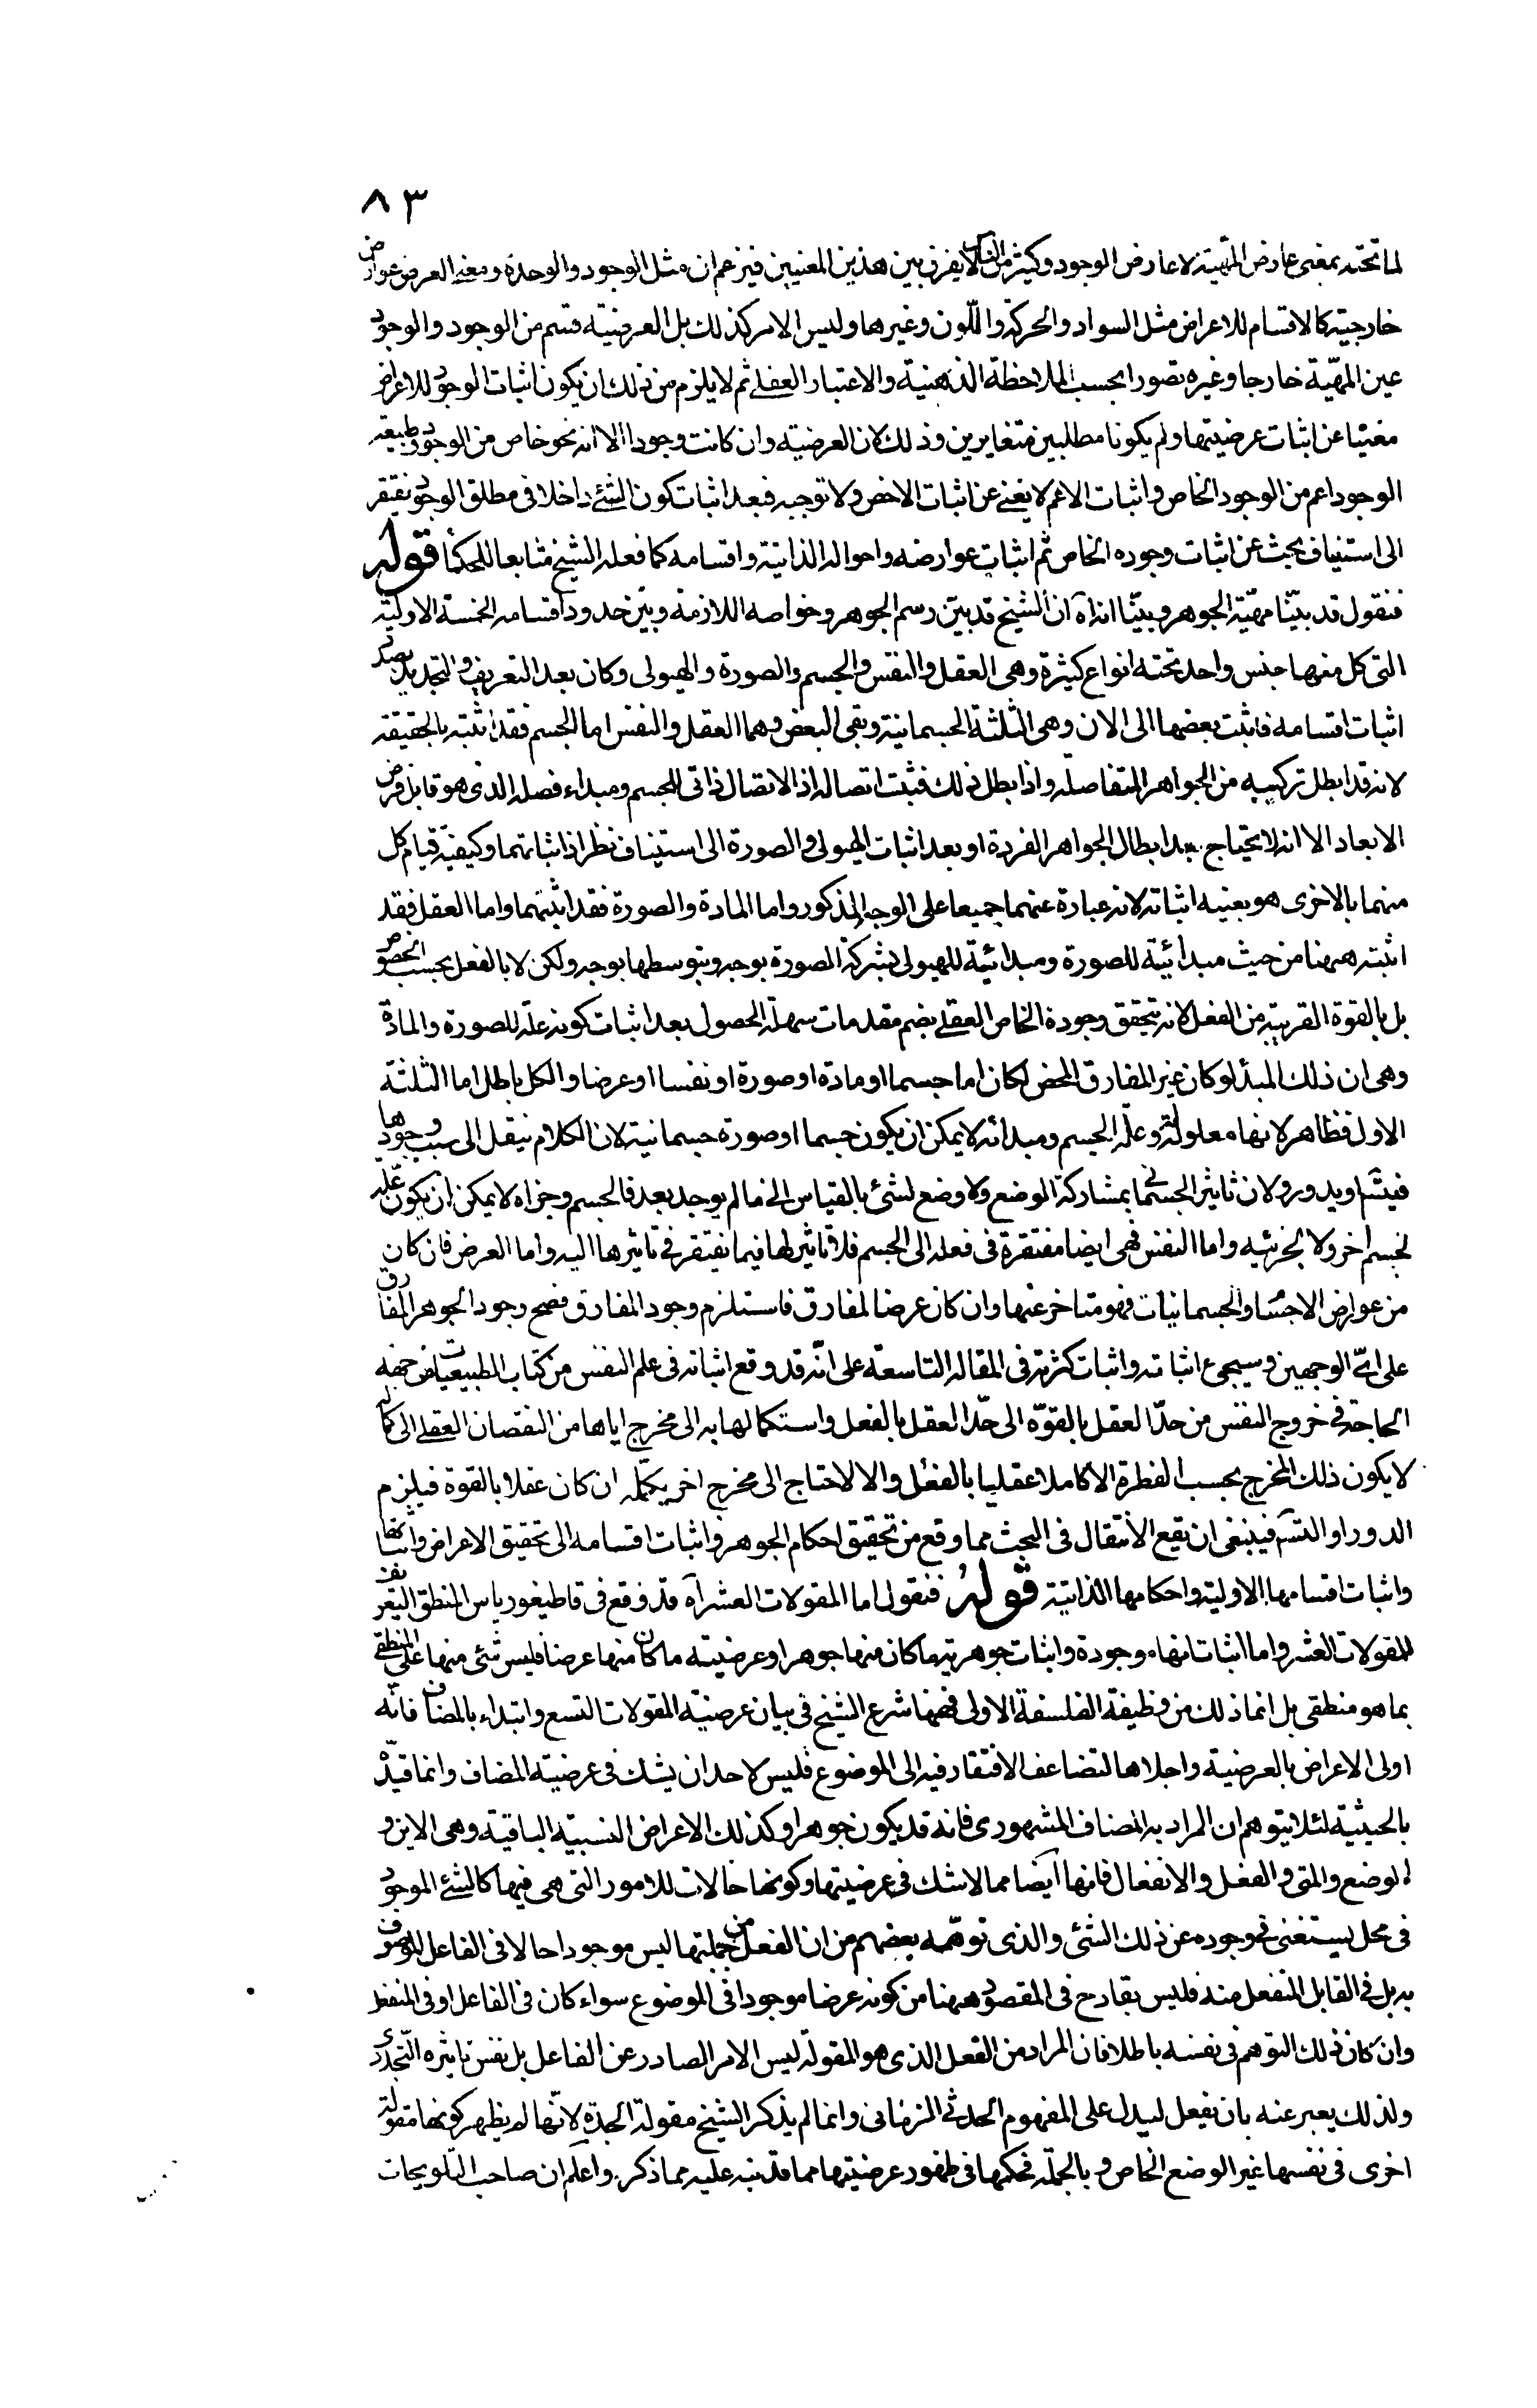 ٨٣
لما تحته بمعنى عارض المهية لا عارض الوجود وكثير من الناس لا يفرق بين هذين المعنيين فيزعم ان مثل الوجود والوحدة ومعنى العرض عوارض
خارجية كالاقسام للاعراض مثل السواد والحركة واللون وغيرها وليس الامر كذلك بل العرضية قسم من الوجود والوجود
عين المهية خارجا وغيره تصورا بحسب الملاحظة الذهنية والاعتبار العقلى ثم لا يلزم من ذلك ان يكون اثبات الوجود للاعراض
مغنيا عن اثبات عرضيتها ولم يكونا مطلبين متغايرين وذلك لان العرضية وان كانت وجودا الا انه نحو خاص من الوجود وطبيعة
الوجود اعم من الوجود الخاص واثبات الاعم لا يغنى عن اثبات الاخص ولا توجبه فبعد اثبات كون الشئ داخلا فى مطلق الوجود نفتقر
الى استيناف بحث عن اثبات وجوده الخاص ثم اثبات عوارضه واحواله الذاتية واقسامه كما فعله الشيخ متابعا للحكماء قوله
فنقول قد بيّنّا مهيّة الجوهر وبيّنّا انها آه ان الشيخ قد بيّن رسم الجوهر وخواصه اللازمة وبيّن حدود اقسامه الخمسة الاولية
التى كل منها جنس واحد تحته انواع كثيرة وهى العقل والنفس والجسم والصورة والهيولى وكان بعد التعريف والتحديد بصدد
اثبات اقسامه فاثبت بعضها الى الان وهى الثلثة الجسمانية وبقى البعض وهما العقل والنفس اما الجسم فقد اثبته بالحقيقة
لانه قد ابطل تركيبه من الجواهر المتفاصلة واذا بطل ذلك فثبت اتصاله اذ الاتصال ذاتى للجسم ومبداء فصله الذى هو قابل فرض
الابعاد الا انه لا يحتاج بعد ابطال الجواهر الفردة او بعد اثبات الهيولى والصورة الى استيناف نظر اذ اثباتهما وكيفية قيام كل
منهما بالاخرى هو بعينه اثباته لانه عبارة عنهما جميعا على الوجه المذكور واما المادة والصورة فقد اثبتهما واما العقل فقد
اثبته ههنا من حيث مبدائيته للصورة ومبدائيته للهيولى بشركة الصورة بوجه وبتوسطها بوجه ولكن لا بالفعل بحسب الخصوص
بل بالقوة القريبة من الفعل لانه يتحقق وجوده الخاص العقلى بضم مقدمات سهلة الحصول بعد اثبات كونه علة للصورة والمادة
وهى ان ذلك المبدأ لو كان غير المفارق المحض لكان اما جسما او مادة او صورة او نفسا او عرضا والكل باطل اما الثلثة
الاول فظاهر لانها معلولة وعلة الجسم ومبدائه لا يمكن ان يكون جسما او صورة جسمانية لان الكلام ينقل الى سبب وجودها
فيتسم او يدور ولان تاثير الجسم انما بمشاركة الوضع ولا وضع لشئ بالقياس الى ما لم يوجد بعد فالجسم وجزاه لا يمكن ان يكون علة
لجسم اخر ولا لجزئيه واما النفس فهى ايضا مفتقرة فى فعله الى الجسم فلا تاثير لها فيما تفتقر فى تاثيرها اليه واما العرض فان كان
من عوارض الاجسام والجسمانيات فهو متاخر عنها وان كان عرضا لمفارق فاستلزم وجود المفارق فصح وجود الجوهر المفارق
على اىّ الوجهين وسيجئ اثباته واثبات كثرته فى المقالة التاسعة على انّه قد وقع اثباته فى علم النفس من كتاب الطبيعيات من جهة
الحاجة فى خروج النفس من حدّ العقل بالقوّة الى حدّ العقل بالفعل واستكمالها به الى مخرج اياها من النقصان العقلى الى كماله
لا يكون ذلك المخرج بحسب الفطرة الا كاملا عقليا بالفعل والا لاحتاج الى مخرج اخر يكمّله ان كان عقلا بالقوة فيلزم
الدور او التسم فينبغى ان يقع الانتقال فى البحث مما وقع من تحقيق احكام الجوهر واثبات اقسامه الى تحقيق الاعراض واثباتها
واثبات اقسامها الاولية واحكامها الذاتية قوله فنقول اما المقولات العشر آه قد وقع فى قاطيغورياس المنطق التعريف
للمقولات العشر واما اثبات انها موجودة واثبات جوهرية ما كان منها جوهرا وعرضيته ما كان منها عرضا فليس شئ منها على المنطقى
بما هو منطقى بل انما ذلك من وظيفة الفلسفة الاولى فههنا شرع الشيخ فى بيان عرضية المقولات التسع وابتداء بالمضاف فانه
اولى الاعراض بالعرضية واجلاها لتضاعف الافتقار فيه الى الموضوع فليس لاحد ان يشك فى عرضية المضاف وانما قيّد
بالحيثية لئلا يتوهم ان المراد به المضاف المشهورى فانه قد يكون جوهرا وكذلك الاعراض النسبية الباقية وهى الاين و
الوضع والمتى والفعل والانفعال فانها ايضا مما لا شك فى عرضيتها وكونها حالات للامور التى هى فيها كالشئ الموجود
فى محل يستغنى فى وجوده عن ذلك الشئ والذى توهمه بعضهم من ان الفعل من جملتها ليس موجودا حالا فى الفاعل الموصوف
به بل فى القابل المنفعل منه فليس بقادح فى المقصود ههنا من كونه عرضا موجودا فى الموضوع سواء كان فى الفاعل او فى المنفعل
وان كان ذلك التوهم فى نفسه باطلا فان المراد من الفعل الذى هو المقولة ليس الامر الصادر عن الفاعل بل نفس تاثيره التجددى
ولذلك يعبر عنه بان يفعل ليدل على المفهوم الحدثى الزمانى وانما لم يذكر الشيخ مقولة الجدة لانّها لم يظهر كونها مقولة
اخرى فى نفسها غير الوضع الخاص وبالجملة فحكمها فى ظهور عرضيتها مما قد نبه عليه مما ذكر واعلم ان صاحب التلويحات